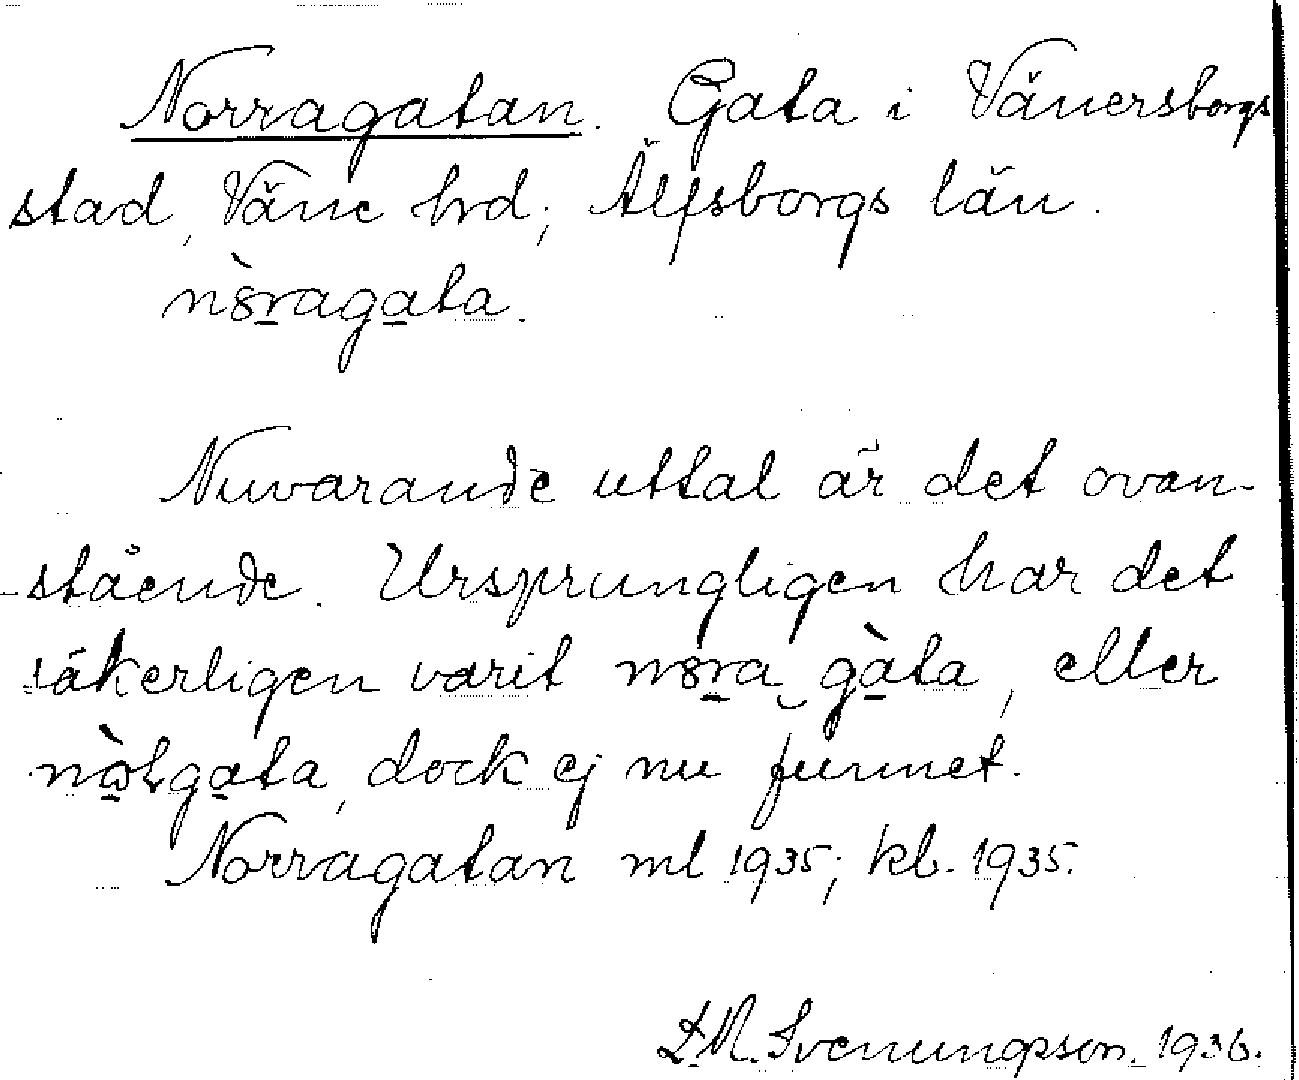 Norragatan. Gata i Vänersborgs
stad, Väne hrd; Älfsborgs län.
nòragata.
Nuvarande uttal är det ovan-
stående. Ursprungligen har det
säkerligen varit nora gàta, eller
nòlgata, dock ej nu funnet.
Norragatan ml 1935; kb. 1935.
D.M. Svenungsson. 1936.